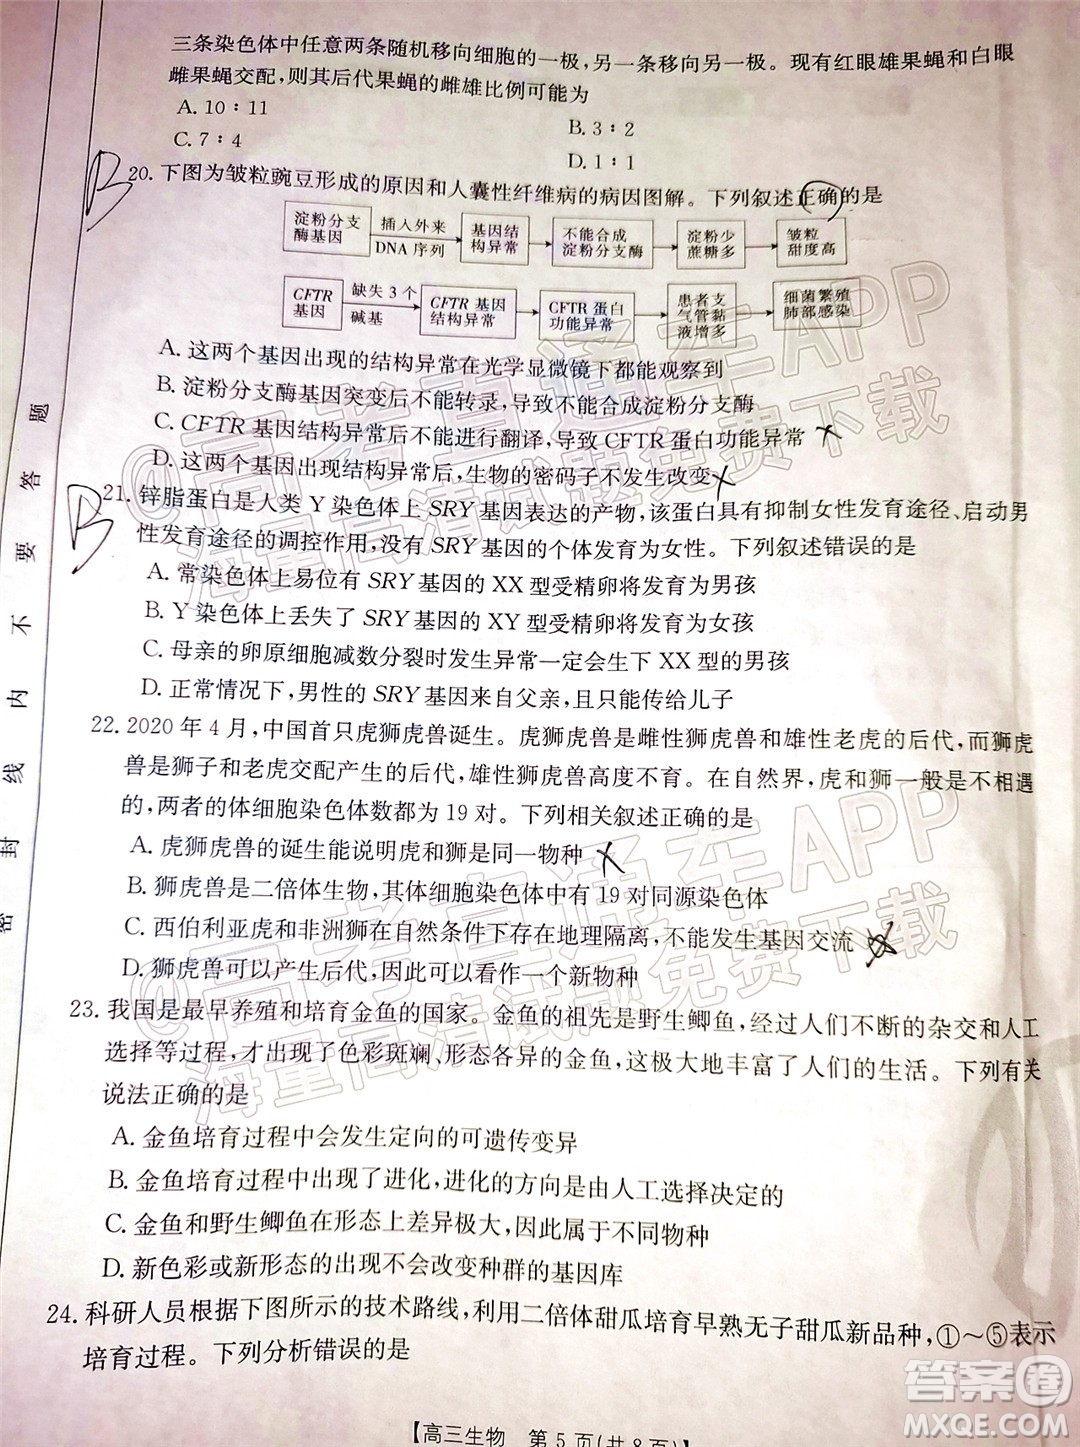 三条染色体中任意两条随机移向细胞的一极，另一条移向另一极。现有红眼雄果蝇和白眼
雌果蝇交配，则其后代果蝇的雌雄比例可能为
A. 10∶11
B. 3∶2
C. 7∶4
D. 1∶1
B
20. 下图为皱粒豌豆形成的原因和人囊性纤维病的病因图解。下列叙述正确的是
淀粉分支酶基因 插入外来DNA序列 基因结构异常 不能合成淀粉分支酶 淀粉少蔗糖多 皱粒甜度高
CFTR基因 缺失3个碱基 CFTR基因结构异常 CFTR蛋白功能异常 患者支气管黏液增多 细菌繁殖肺部感染
A. 这两个基因出现的结构异常在光学显微镜下都能观察到
B. 淀粉分支酶基因突变后不能转录，导致不能合成淀粉分支酶
C. CFTR基因结构异常后不能进行翻译，导致CFTR蛋白功能异常
D. 这两个基因出现结构异常后，生物的密码子不发生改变
B
21. 锌脂蛋白是人类Y染色体上SRY基因表达的产物，该蛋白具有抑制女性发育途径、启动男
性发育途径的调控作用，没有SRY基因的个体发育为女性。下列叙述错误的是
A. 常染色体上易位有SRY基因的XX型受精卵将发育为男孩
B. Y染色体上丢失了SRY基因的XY型受精卵将发育为女孩
C. 母亲的卵原细胞减数分裂异常一定会生出XX型的男孩
D. 正常情况下，男性的SRY基因来自父亲，且只能传给儿子
22. 2020年4月，中国首只虎狮虎兽诞生。虎狮虎兽是雌性狮虎兽和雄性老虎的后代，而狮虎
兽是狮子和老虎交配产生的后代，雄性狮虎兽高度不育。在自然界，虎和狮一般是不相遇
的，两者的体细胞染色体数都为19对。下列相关叙述正确的是
A. 虎狮虎兽的诞生能说明虎和狮是同一物种
B. 狮虎兽是二倍体生物，其体细胞染色体中有19对同源染色体
C. 西伯利亚虎和非洲狮在自然条件下存在地理隔离，不能发生基因交流
D. 狮虎兽可以产生后代，因此可以看作一个新物种
23. 我国是最早养殖和培育金鱼的国家。金鱼的祖先是野生鲫鱼，经过人们不断的杂交和人工
选择等过程，才出现了色彩斑斓、形态各异的金鱼，这极大地丰富了人们的生活。下列有关
说法正确的是
A. 金鱼培育过程中会发生定向的可遗传变异
B. 金鱼培育过程中出现了进化，进化的方向是由人工选择决定的
C. 金鱼和野生鲫鱼在形态上差异极大，因此属于不同物种
D. 新色彩或新形态的出现不会改变种群的基因库
24. 科研人员根据下图所示的技术路线，利用二倍体甜瓜培育早熟无子甜瓜新品种，①～⑤表示
培育过程。下列分析错误的是
【高三生物 第5页(共8页)】
密 封 线 内 不 要 答 题
@高考直通车APP
海量高清试题免费下载
@高考直通车APP
海量高清试题免费下载
答案圈
MXQE.COM